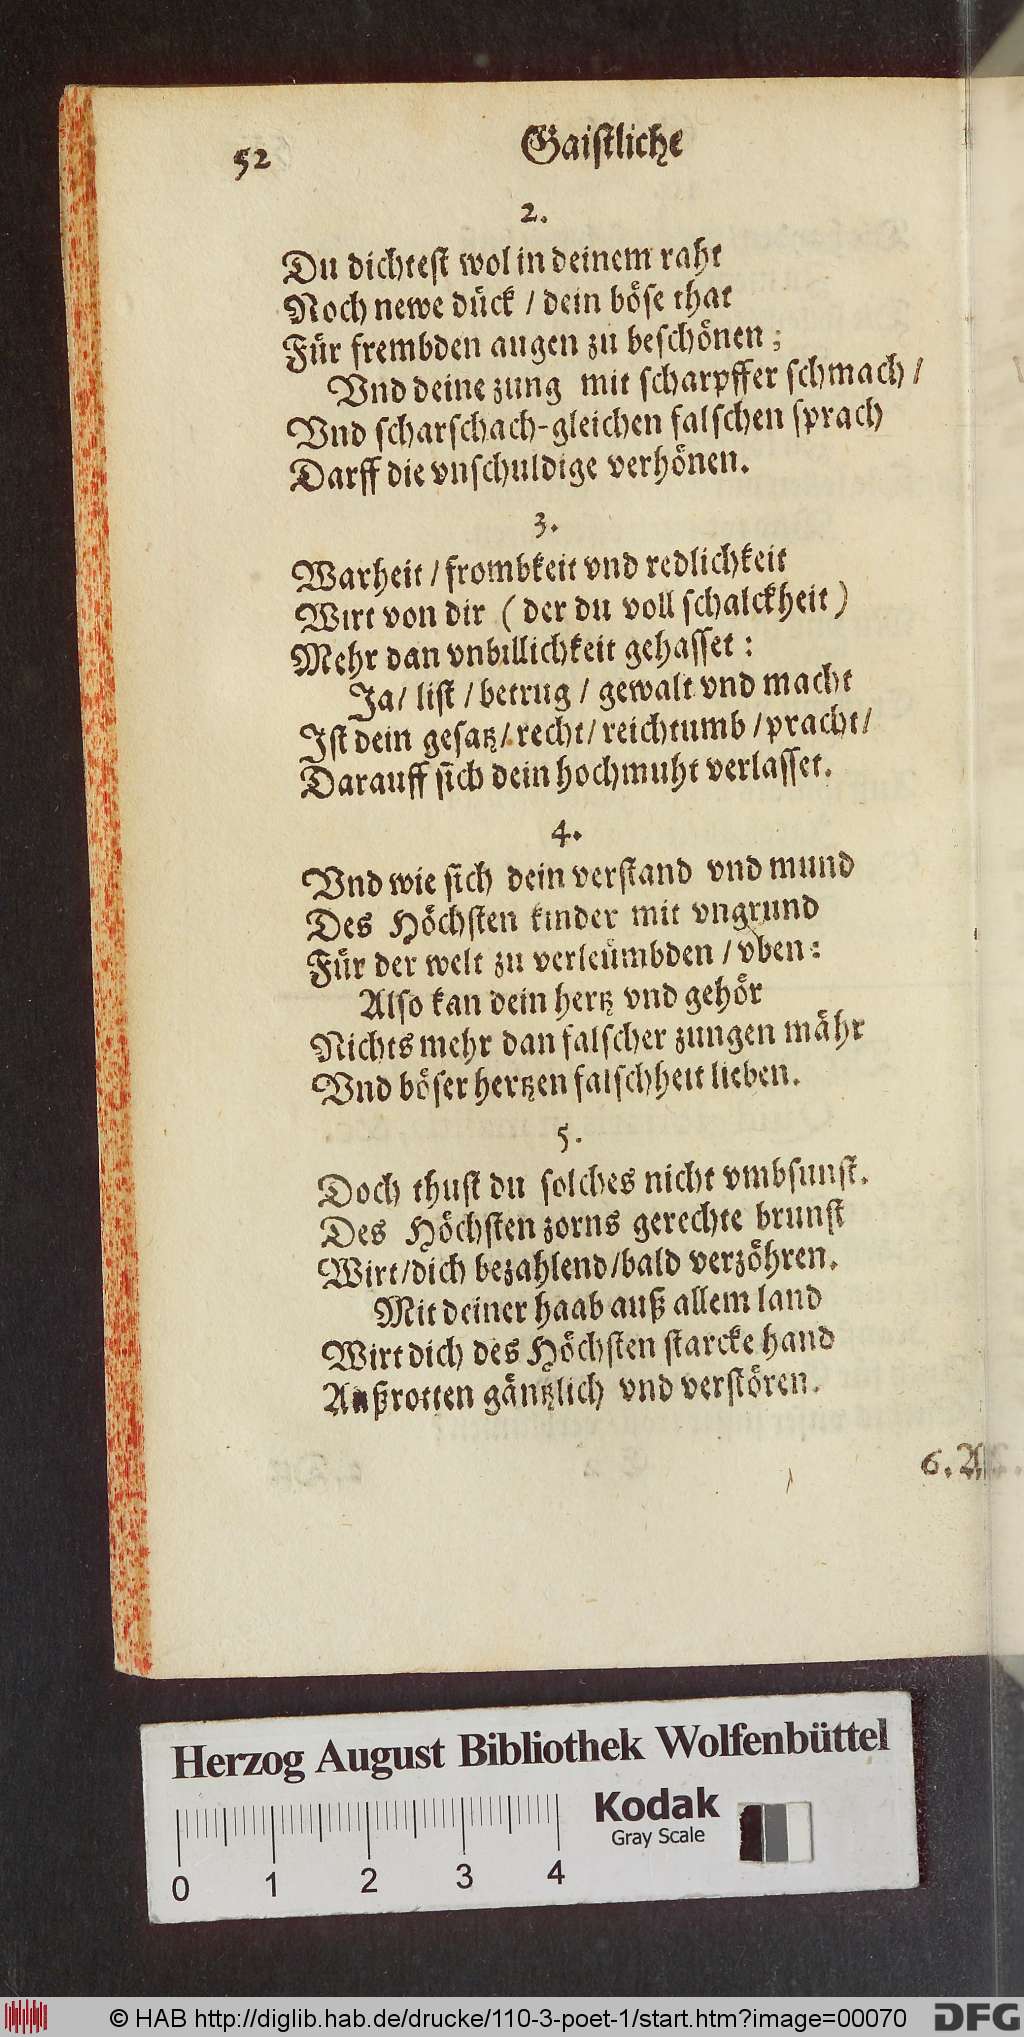 52 Gaistliche
2.
Du dichtest wol in deinem raht
Noch newe dück / dein böse that
Für frembden augen zu beschönen;
Vnd deine zung mit scharpffer schmach /
Vnd scharschach-gleichen falschen sprach
Darff die vnschuldige verhönen.
3.
Warheit / frombkeit vnd redlichkeit
Wirt von dir (der du voll schalckheit)
Mehr dan vnbillichkeit gehasset:
Ja/ list / betrug / gewalt vnd macht
Ist dein gesatz/ recht/ reichtumb /pracht/
Darauff sich dein hochmuht verlasset.
4.
Vnd wie sich dein verstand vnd mund
Des Höchsten kinder mit vngrund
Für der welt zu verleümbden / vben:
Also kan dein hertz vnd gehör
Nichts mehr dan falscher zungen mähr
Vnd böser hertzen falschheit lieben.
5.
Doch thust du solches nicht vmbsunst.
Des Höchsten zorns gerechte brunst
Wirt/dich bezahlend/bald verzöhren.
Mit deiner haab auß allem land
Wirt dich des Höchsten starcke hand
Außrotten gäntzlich vnd verstören.
6. A
Herzog August Bibliothek Wolfenbüttel
Kodak
Gray Scale
0 1 2 3 4
© HAB http://diglib.hab.de/drucke/110-3-poet-1/start.htm?image=00070 DFG